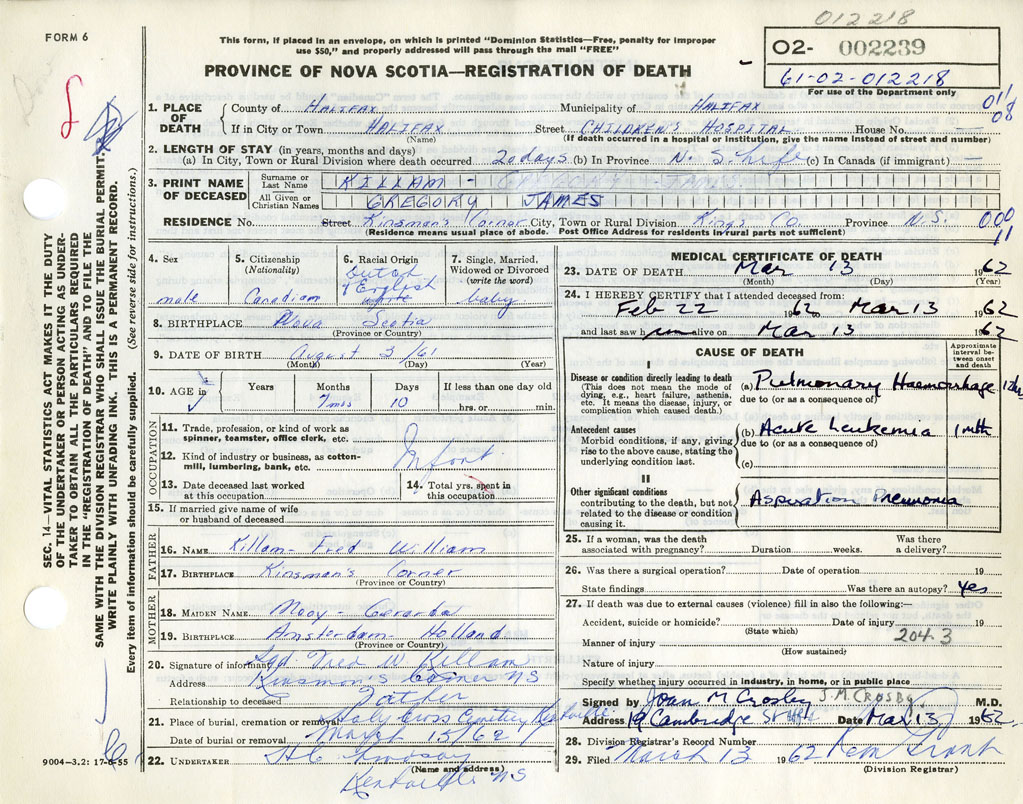 012218
FORM 6
This form, if placed in an envelope, on which is printed "Dominion Statistics—Free, penalty for improper
use $50," and properly addressed will pass through the mail "FREE"
O2- 002239
61-02-012218
For use of the Department only
PROVINCE OF NOVA SCOTIA—REGISTRATION OF DEATH
1. PLACE OF DEATH
County of HALIFAX Municipality of HALIFAX
011
08
If in City or Town HALIFAX Street CHILDREN'S HOSPITAL House No. —
(Name) (If death occurred in a hospital or institution, give the name instead of street and number)
2. LENGTH OF STAY (in years, months and days)
(a) In City, Town or Rural Division where death occurred 20 days (b) In Province N.S. life (c) In Canada (if immigrant) —
3. PRINT NAME OF DECEASED
Surname or Last Name KILLAM - GREGORY JAMES
All Given or Christian Names GREGORY JAMES
RESIDENCE No. Street Kinsman's Corner City, Town or Rural Division Kings Co. Province N.S.
000
11
(Residence means usual place of abode. Post Office Address for residents in rural parts not sufficient)
4. Sex male
5. Citizenship (Nationality) Canadian
6. Racial Origin Dutch & English white
7. Single, Married, Widowed or Divorced (write the word) baby
8. BIRTHPLACE Nova Scotia
(Province or Country)
9. DATE OF BIRTH August 3/61
(Month) (Day) (Year)
10. AGE in Years Months 7 mos Days 10 If less than one day old
hrs. or min.
OCCUPATION
11. Trade, profession, or kind of work as
spinner, teamster, office clerk, etc.
12. Kind of industry or business, as cotton-
mill, lumbering, bank, etc.
Infant
13. Date deceased last worked
at this occupation
14. Total yrs. spent in
this occupation
15. If married give name of wife
or husband of deceased
FATHER
16. NAME Killam - Fred William
17. BIRTHPLACE Kinsman's Corner
(Province or Country)
MOTHER
18. MAIDEN NAME Mooy - Gerarda
19. BIRTHPLACE Amsterdam - Holland
(Province or Country)
20. Signature of informant Sgd. Fred W Killam
Address Kinsman's Corner NS
Relationship to deceased Father
21. Place of burial, cremation or removal Holy Cross Cemetery Kentville
Date of burial or removal March 15/62
22. UNDERTAKER
(Name and address)
Kentville NS
MEDICAL CERTIFICATE OF DEATH
23. DATE OF DEATH Mar 13 1962
(Month) (Day) (Year)
24. I HEREBY CERTIFY that I attended deceased from:
Feb 22 1962 to Mar 13 1962
and last saw him alive on Mar 13 1962
CAUSE OF DEATH
Approximate
interval be-
tween onset
and death
I
Disease or condition directly leading to death
(This does not mean the mode of
dying, e.g., heart failure, asthenia,
etc. It means the disease, injury, or
complication which caused death.)
(a) Pulmonary Haemorrhage
due to (or as a consequence of)
Antecedent causes
Morbid conditions, if any, giving
rise to the above cause, stating the
underlying condition last.
(b) Acute Leukemia 1 mth
due to (or as a consequence of)
(c)
II
Other significant conditions
contributing to the death, but not
related to the disease or condition
causing it.
Aspiration Pneumonia
25. If a woman, was the death
associated with pregnancy? Duration weeks. Was there
a delivery?
26. Was there a surgical operation? Date of operation 19
State findings Was there an autopsy? Yes
27. If death was due to external causes (violence) fill in also the following:—
Accident, suicide or homicide? Date of injury 19
(State which)
204.3
Manner of injury
(How sustained)
Nature of injury
Specify whether injury occurred in industry, in home, or in public place
Signed by Joan M Crosby J.M. CROSBY M.D.
Address 19 Cambridge Date Mar 13 1962
28. Division Registrar's Record Number
29. Filed March 13 1962
(Division Registrar)
SEC. 14—VITAL STATISTICS ACT MAKES IT THE DUTY
OF THE UNDERTAKER OR PERSON ACTING AS UNDER-
TAKER TO OBTAIN ALL THE PARTICULARS REQUIRED
IN THE "REGISTRATION OF DEATH" AND TO FILE THE
SAME WITH THE DIVISION REGISTRAR WHO SHALL ISSUE THE BURIAL PERMIT.
WRITE PLAINLY WITH UNFADING INK. THIS IS A PERMANENT RECORD.
Every item of information should be carefully supplied. (See reverse side for instructions.)
9004-3.2: 17-8-55